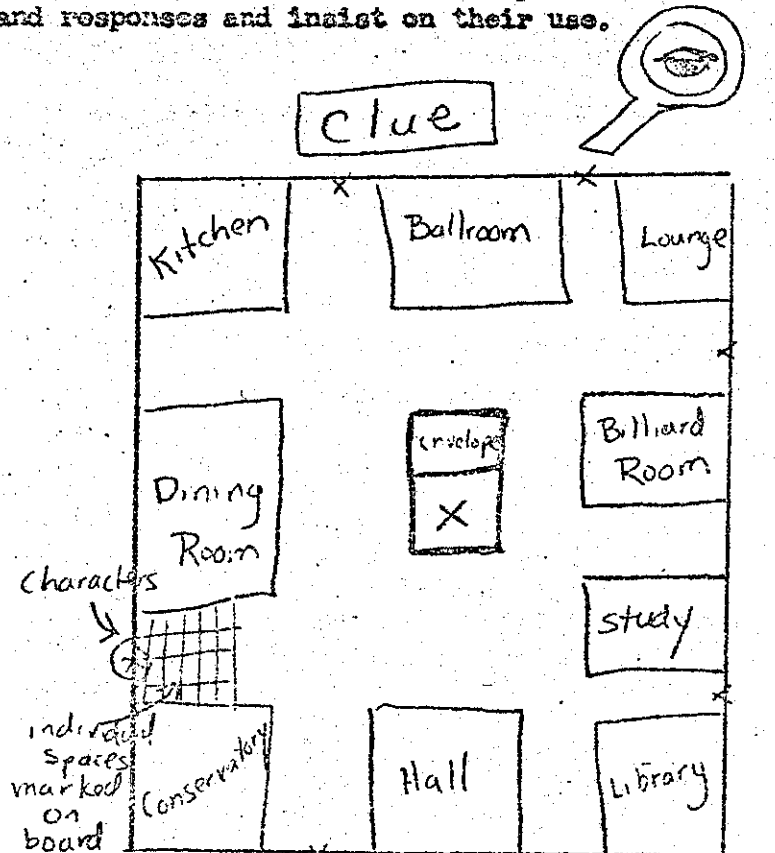 and responses and insist on their use.
Clue
Kitchen
Ballroom
Lounge
envelope
X
Billiard
Room
Dining
Room
Characters
Study
individual
spaces
marked
on
board
Conservatory
Hall
Library